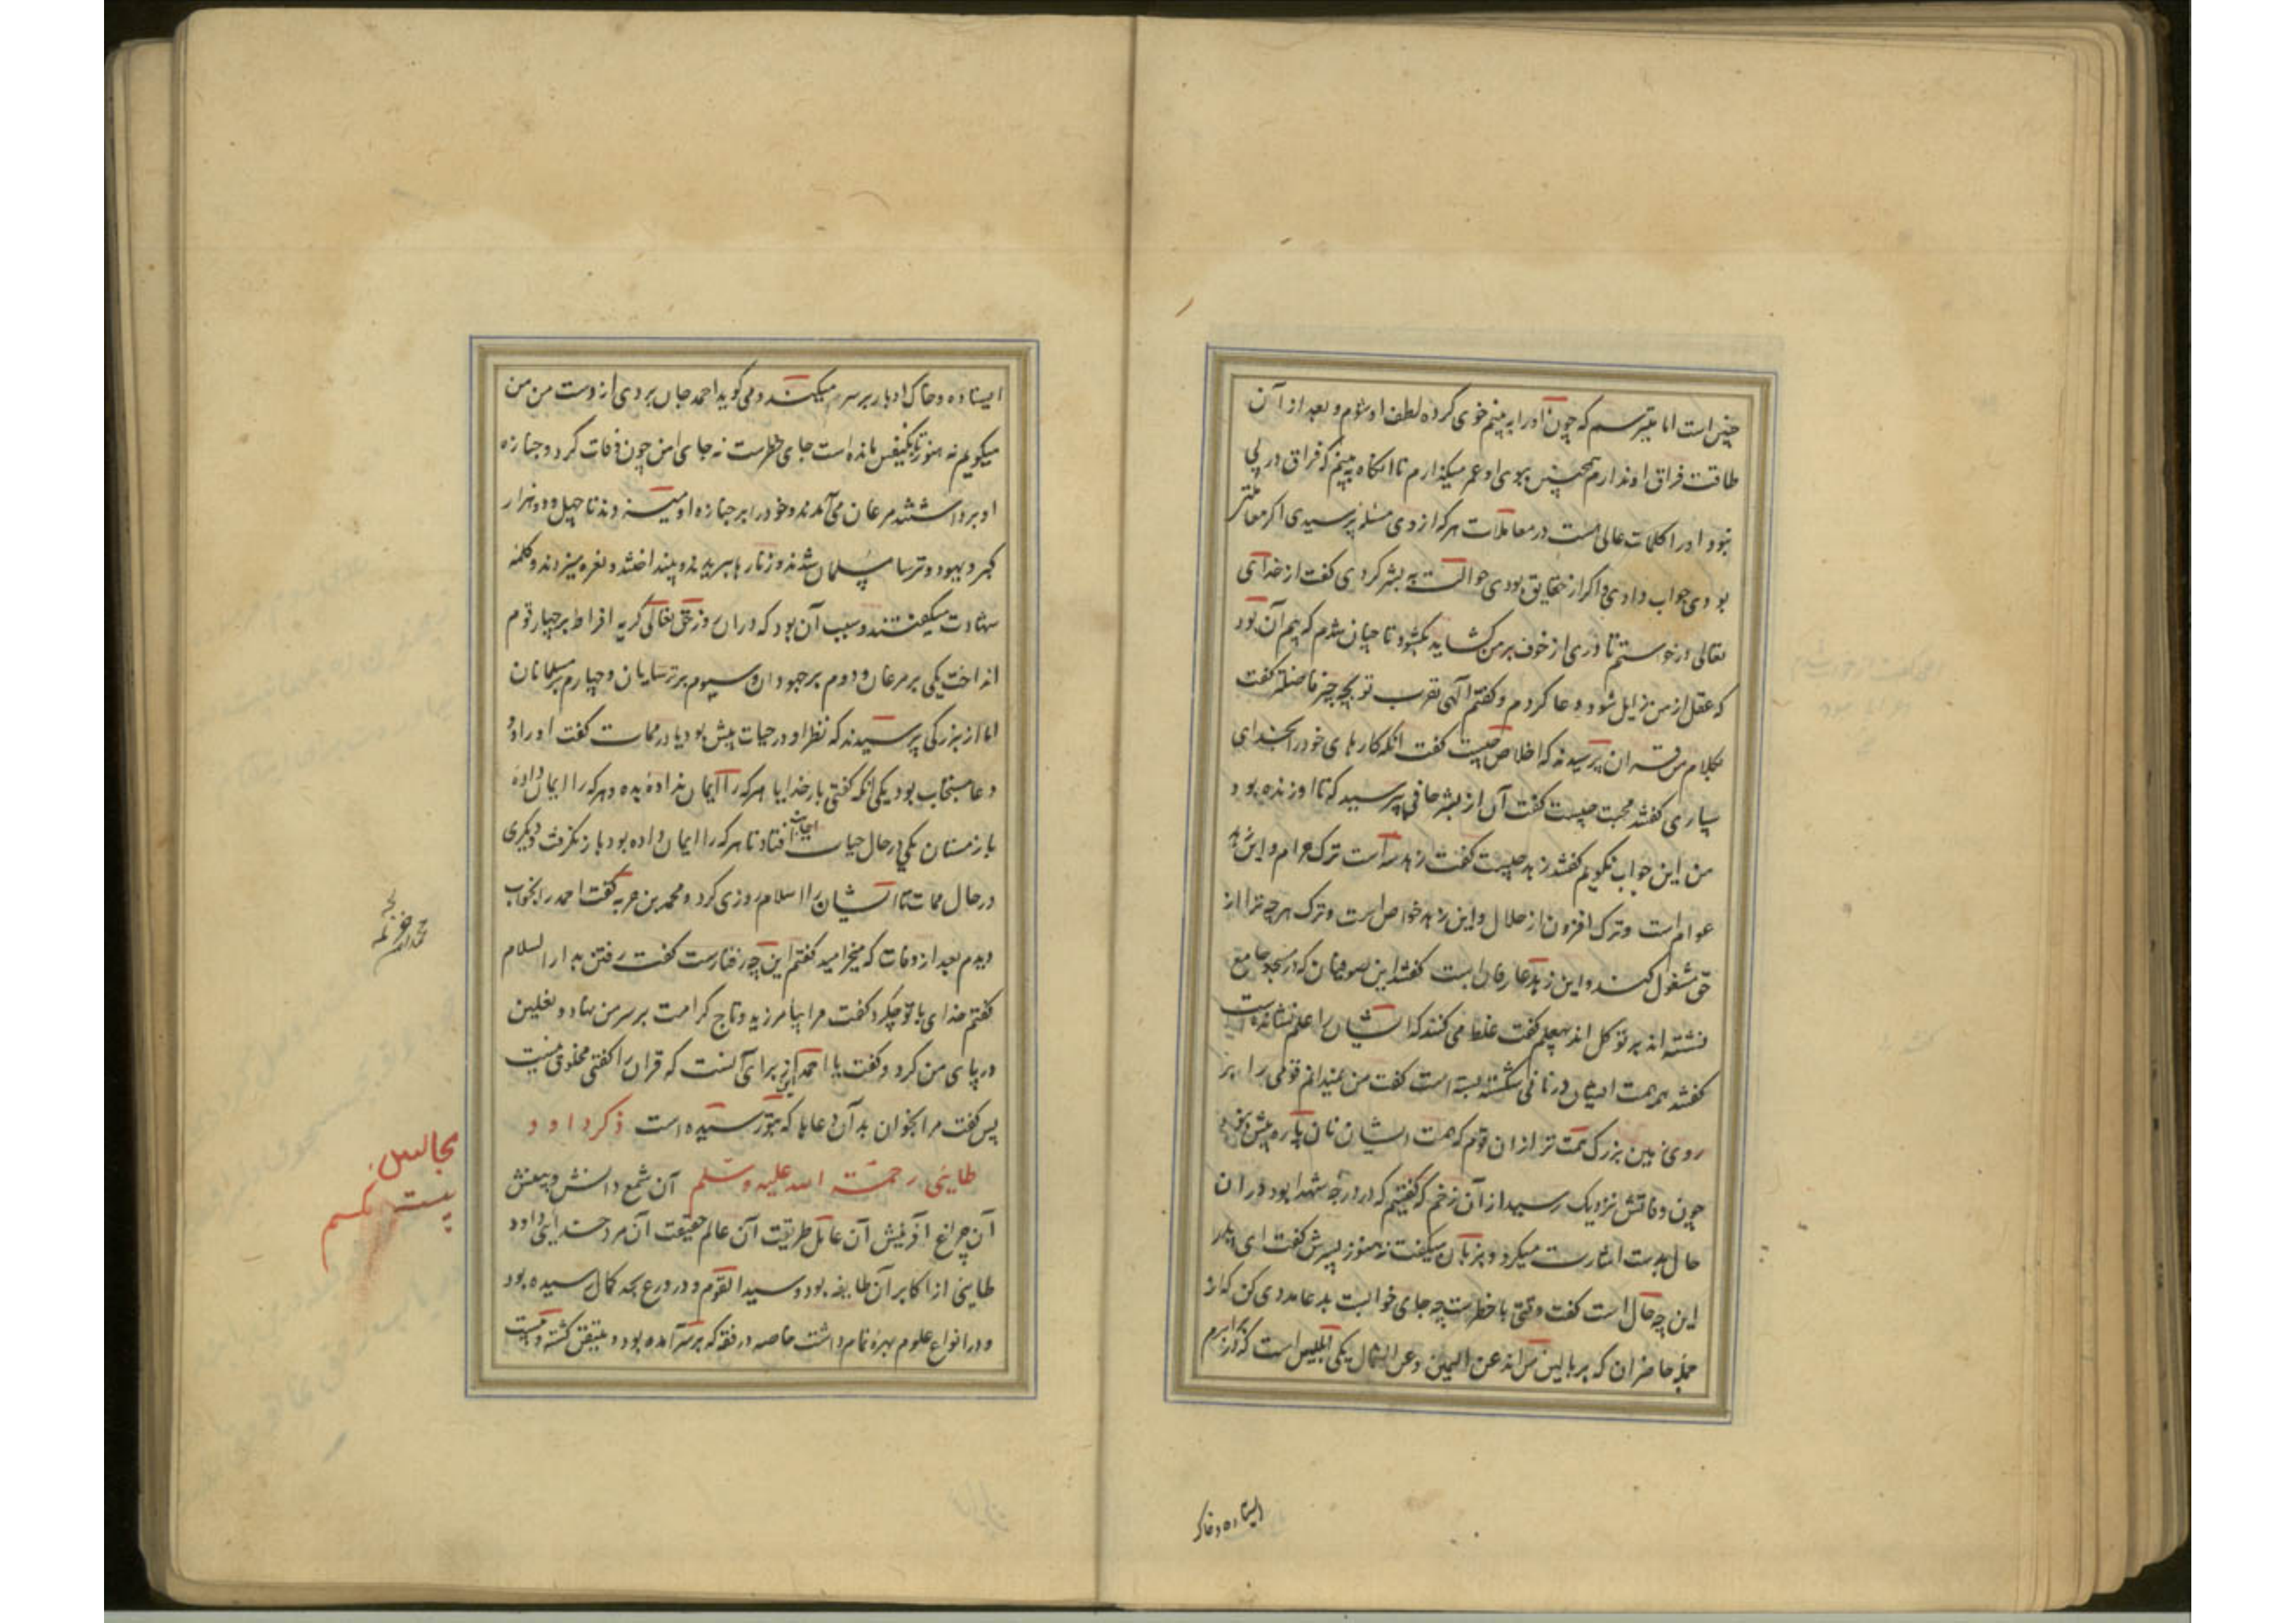 چنین است اما میترسم که چون اورا به بینم خوی کرده لطف او شوم و بعد از آن
طاقت فراق او ندارم همچنین ببوی او عمر میگذارم تا آنگاه به بینم که فراق در پی
نبود اورا کلمات عالی است در معاملات هر که از وی مسئله پرسیدی اگر معاملتی
بودی جواب دادی و اگر از حقایق بودی حوالت به بشر کردی گفت از خدای
تعالی درخواستم تا دری از خوف بر من گشاید بگشود تا چنان شدم که بیم آن بود
که عقل از من زایل شود دعا کردم و گفتم الهی تقرب تو بچه چیز فاضلتر گفت
بکلام من قران پرسیدند که اخلاص چیست گفت آنکه کارهای خود را بخدای
سپاری گفتند محبت چیست گفت آن از بشر حافی پرسید که تا او زنده بود
من این جواب نگویم گفتند زهد چیست گفت زهد سه است ترک حرام و این زهد
عوام است و ترک افزون از حلال و این زهد خواص است و ترک هر چه ترا از
حق مشغول کند و این زهد عارفان است گفتند این صوفیان که در مسجد جامع
نشسته اند بر توکل اند بیعلم گفت غلط می کنند که ایشان را علم نشانده است
گفتند همه همت ایشان در نانی شکسته بسته است گفت من نمیدانم قومی را بر
روی زمین بزرگ همت تر از ان قوم که همت ایشان نان پاره بیش نبود
چون وفاتش نزدیک رسید از آن زخم که گفتیم که در درجه شهدا بود در ان
حال بدست اشارت میکرد و بزبان میگفت نه هنوز پسرش گفت ای پدر
این چه حال است گفت وقتی با خطرست چه جای جوابست بدعا مددی کن که از
جمله حاضران که بر بالین من اند عن الیمین و عن الشمال یکی ابلیس است که در برابرم
ایستاده و خاک
ایستاده و خاک ادبار بر سر میکند و می گوید احمد جان بردی از دست من من
میگویم نه هنوز تا یکنفس مانده است جای خطرست نه جای امن چون وفات کرد و جنازه
او برداشتند مرغان می آمدند و خود را بر جنازه او میزدند تا چهل و دو هزار
گبر و یهود و ترسا مسلمان شدند و زنارها ببریدند و بینداختند و نعره میزدند و کلمه
شهادت میگفتند و سبب آن بود که در ان روز حق تعالی گریه افراط بر چهار قوم
انداخت یکی بر مرغان و دوم بر جهودان و سیوم بر ترسایان و چهارم بر مسلمانان
اما از بزرگی پرسیدند که نظر او در حیات بیش بود یا در ممات گفت او را دو
دعا مستجاب بود یکی آنکه گفتی بار خدایا هر که را ایمان نداده بده و هر که را ایمان داده
باز مستان یکی در حال حیات اجابت افتاد تا هر که را ایمان داده بود باز نگرفت و دیگری
در حال ممات تا ایشان را اسلام روزی کرد و محمد بن خزیمه گفت احمد را بخواب
دیدم بعد از وفات که میخرامید گفتم این چه رفتارست گفت رفتن بدار السلام
گفتم خدای با تو چکرد گفت مرا بیامرزید و تاج کرامت بر سر من نهاد و نعلین
در پای من کرد و گفت یا احمد این برای آنست که قران را گفتی مخلوق نیست
پس گفت مرا بخوان بدان دعاها که بتو رسیده است ذکر داود
طایی رحمة الله علیه وسلم آن شمع دانش و بینش
آن چراغ آفرینش آن عامل طریقت آن عالم حقیقت آن مرد خدایی داود
طایی از اکابر آن طایفه بود و سید القوم و در ورع بحد کمال رسیده بود
و در انواع علوم بهره تمام داشت خاصه در فقه که بر سر آمده بود و متیقن گشته و بیست
مجالس
بیست یکم